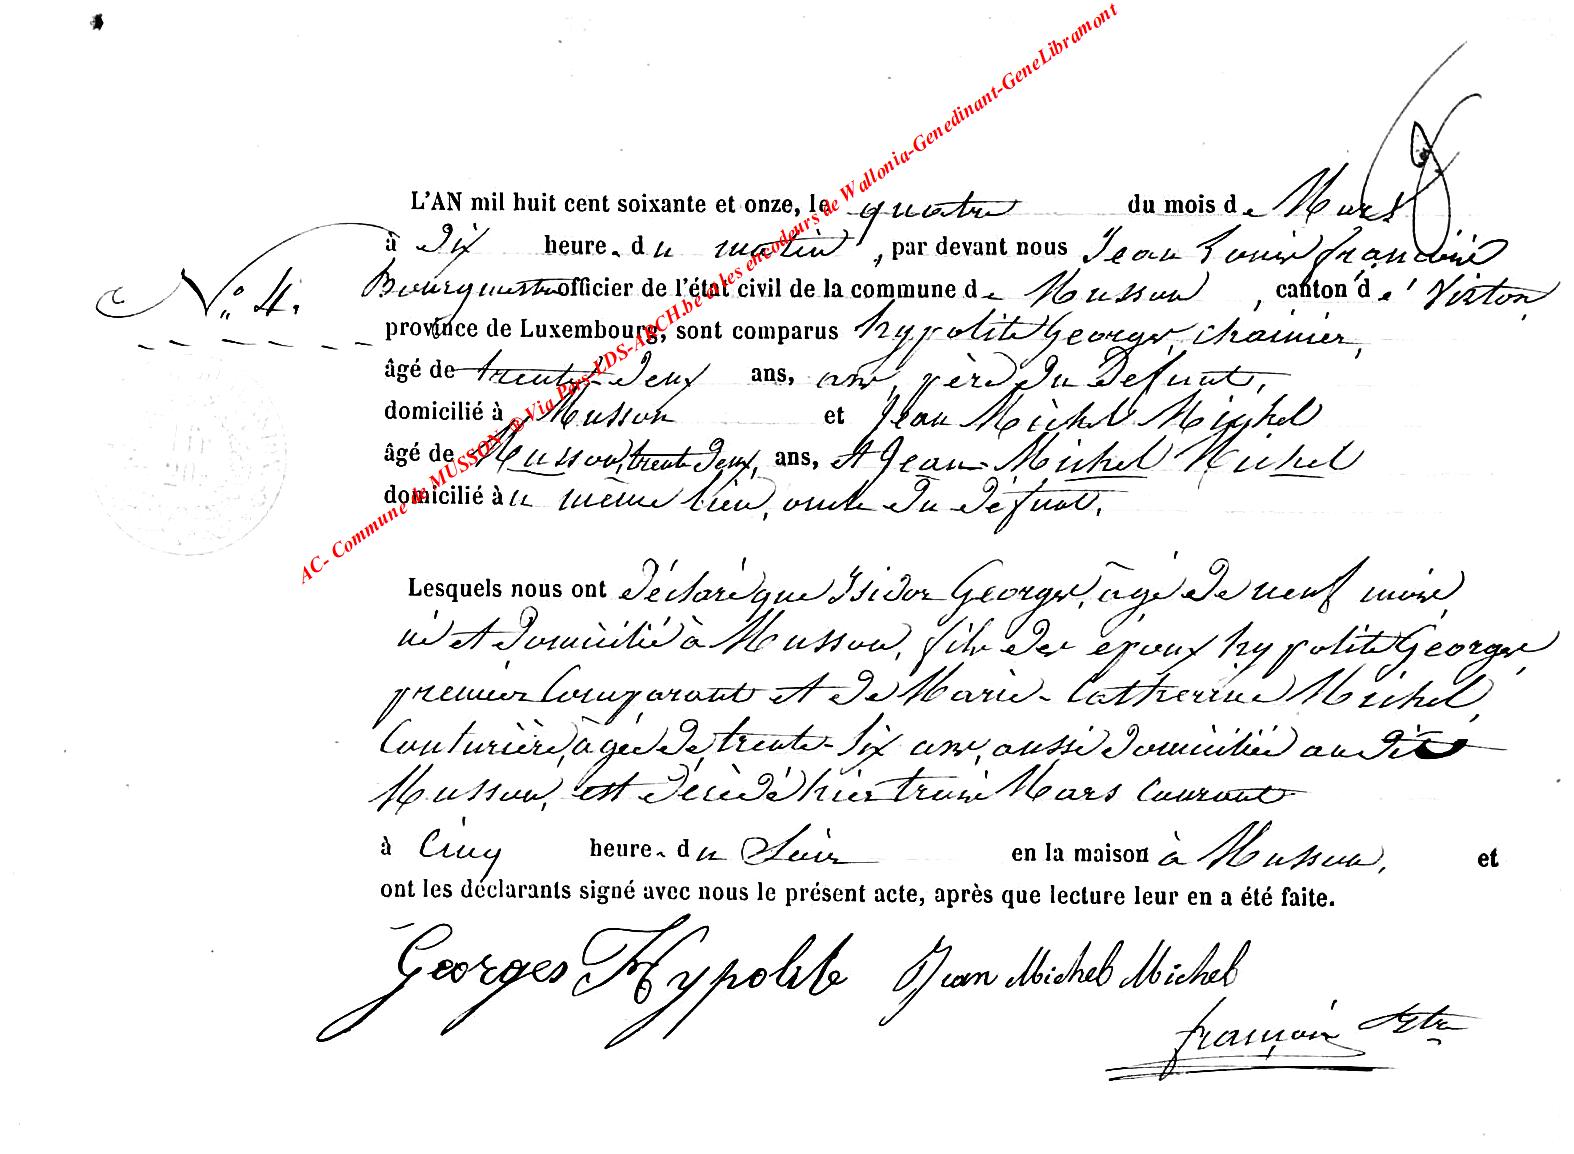 AC- Commune de MUSSON @ Via Pers-LDS-ARCH.be et les encodeurs de Wallonia-Genedinant-GeneLibramont
L'AN mil huit cent soixante et onze, le quatre du mois de Mars
à Dix heure. du matin, par devant nous Jean Louis françois
N.° 4. Bourguemtre officier de l'état civil de la commune de Musson, canton de Virton,
province de Luxembourg, sont comparus hypolite Georges, chainier,
âgé de trente-Deux ans, père du Defunt,
domicilié à Musson et Jean Michel Michel
âgé de Musson, trente Deux, ans, et Jean-Michel Michel
domicilié au même lieu, oncle du défunt,
Lesquels nous ont déclaré que Isidor Georges, âgé de neuf mois,
né et domicilié à Musson, fils des époux hypolite Georges,
premier Comparant et de Marie-Catherine Michel,
Couturière, âgée de trente-six ans, aussi domiciliée au dit
Musson, est décédé hier trois Mars courant
à Cinq heure. du Soir en la maison à Musson, et
ont les déclarants signé avec nous le présent acte, après que lecture leur en a été faite.
Georges Hypolite Jean Michel Michel
françois